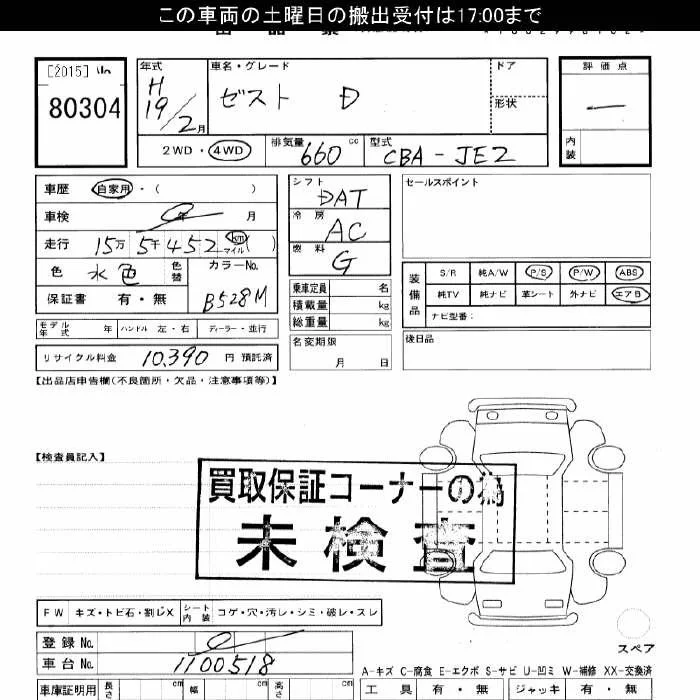 この車両の土曜日の搬出受付は17:00まで
[2015]
80304
年式
H
19/2月
車名・グレード
ゼスト D
ドア
形状
評価点
—
内装
2WD・4WD
排気量 660 cc
型式 CBA-JE2
車歴 自家用・( )
車検 0年 月
走行 15万5千452 km マイル ( )
色 水色 色替
カラーNo. B528M
保証書 有・無
シフト DAT
冷房 AC
燃料 G
乗車定員 名
積載量 kg
総重量 kg
名変期限 月 日
セールスポイント
装備品
S/R 純A/W P/S P/W ABS
純TV 純ナビ 革シート 外ナビ エアB
ナビ型番:
後日品
モデル年式 年 ハンドル 左・右 ディーラー・並行
リサイクル料金 10,390 円 預託済
【出品店申告欄(不良箇所・欠品・注意事項等)】
【検査員記入】
買取保証コーナーの為
未検査
FW キズ・トビ石・割レX シート内装 コゲ・穴・汚レ・シミ・破レ・スレ
登録No. 0
車台No. 1100518
スペア
A-キズ C-腐食 E-エクボ S-サビ U-凹ミ W-補修 XX-交換済
車庫証明用 長さ cm 幅 cm 高さ cm
工具 有・無 ジャッキ 有・無